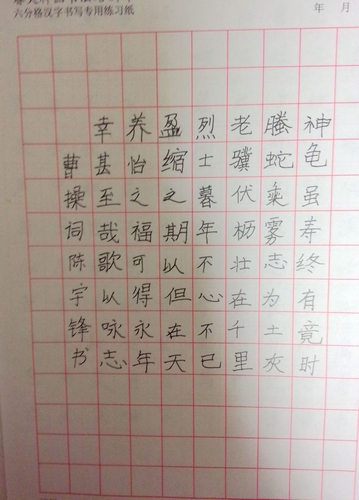 六分格汉字书写专用练习纸 年 月
神龟虽寿终有竟时
螣蛇乘雾志为土灰
老骥伏枥壮在千里
烈士暮年不心不已
盈缩之期以但在天
养怡之福可得永年
幸甚至哉歌以咏志
曹操词陈宇锋书